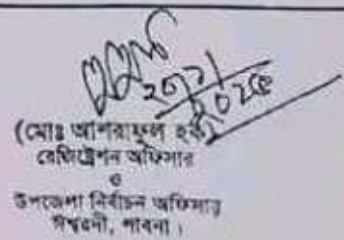 (মোঃ আশরাফুল হক)
রেজিষ্ট্রেশন অফিসার
ও
উপজেলা নির্বাচন অফিসার
ঈশ্বরদী, পাবনা।